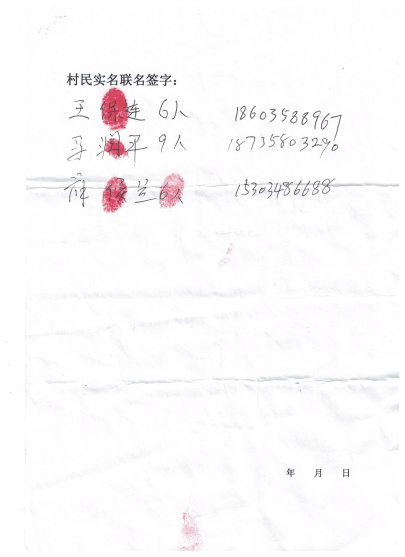 村民实名联名签字：
王保连 6人 18603588967
润平 9人 18735803290
薛 兰 6人 15303486688
年 月 日